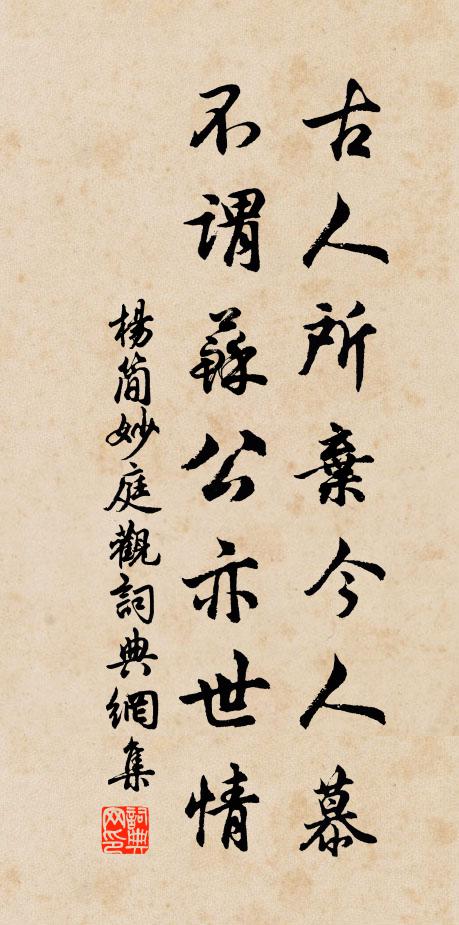 古人所棄今人慕
不謂蘇公亦世情
楊簡妙庭觀詞典網集
詞典網印